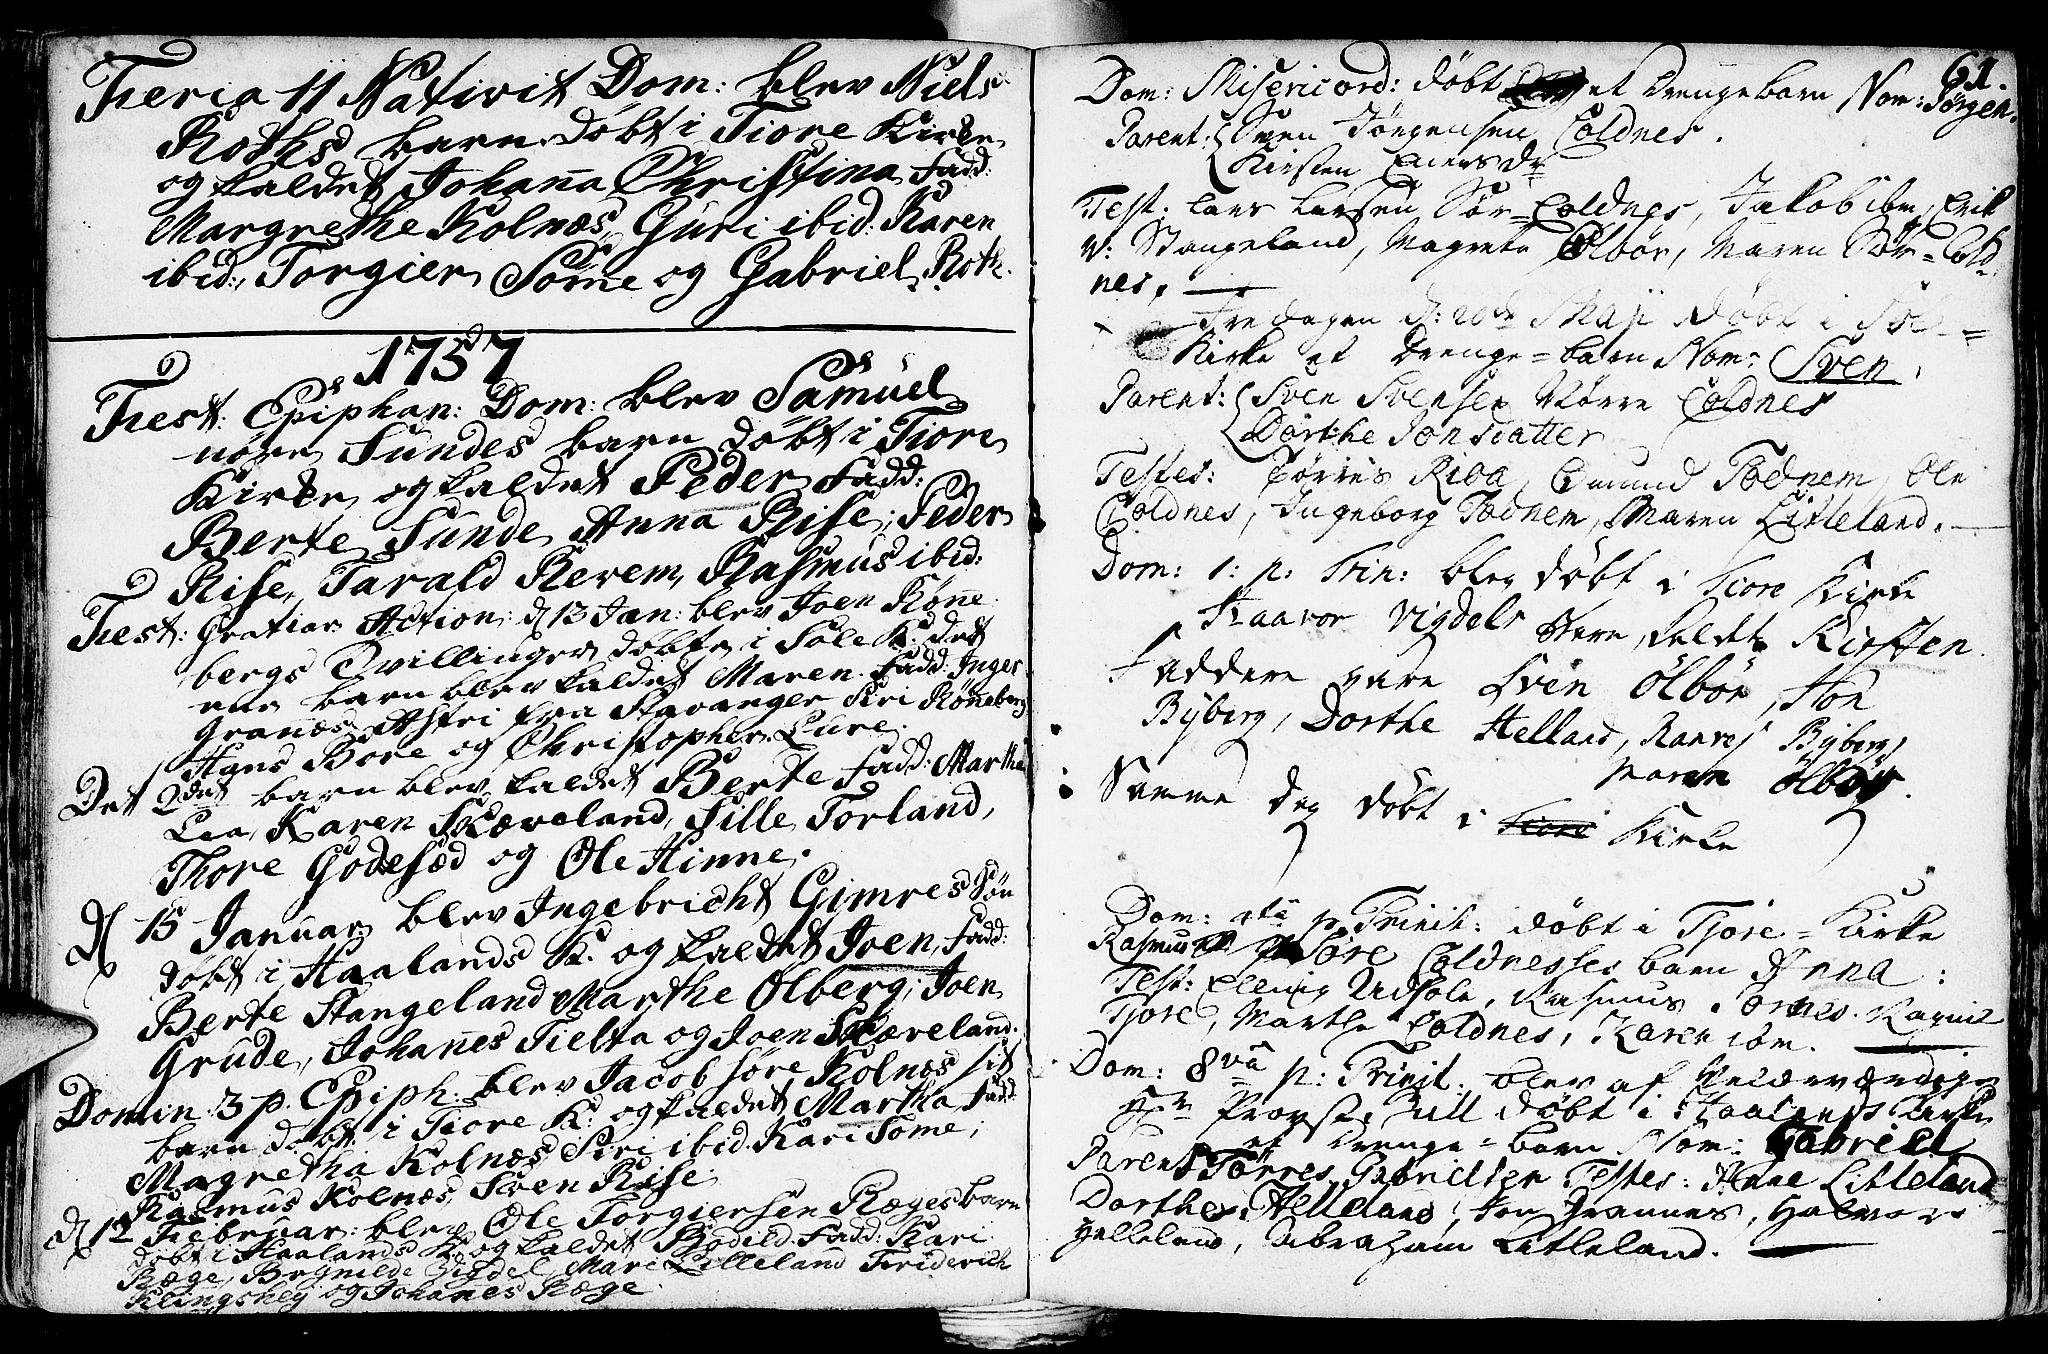 Feria 11 Nativit Dom: blev Niels
Roths barn døbt i Tiore Kirke
og kaldet Johanna Christina Fadd:
Margrethe Kolnæs, Guri ibid: Karen
ibid:, Torgier Sōme og Gabriel Roth.
1757
Fest: Epiphan: Dom: blev Samuel
nøre Sundes barn døbt i Tiore
Kirke og kaldet Peder Fadd:
Berte Sunde Anna Rise; Peder
Rise, Tarald Revem, Rasmus ibid:
Fest: Gratiar: Action: d 13 Jan: blev Joen Røne
bergs Tvillinger døbte i Sole K: det
ene barn blev kaldet Maren. Fadd: Inger
Granæs, Astri fra Stavanger Siri Røneberg
Hans Bore og Christopher Lure.
Det 2det barn blev kaldet Berte Fadd: Martha
Lea, Karen Skæveland, Sille Torland,
Thore Godesæd og Ole Hinne.
d 15 Januar: blev Ingebricht Gimres Søn
døbt i Haalands K. og kaldet Joen, Fadd:
Berte Stangeland Marthe Ølberg; Joen
Grude, Johanes Tielta og Joen Skæveland.
Domin. 3 p. Epiph: blev Jacob søre Kolnæs sit
barn døbt i Tiore K: og kaldet Martha Fadd:
Magretha Kolnæs Siri ibid. Kari Sōme;
Rasmus Kolnæs, Sven Rise
d 12 Februar: blev Ole Torgiersen Ræges barn
døbt i Haalands K. og kaldet Bodild. Fadd: Kari
Ræge, Brynilde Vigdel, Mari Lilleland Friderich
Klingshey og Johanes Ræge
61.
Dom: Misericord: døbt et Drengebarn Nom: Jørgen.
Parent: Sven Jørgensen Coldnes.
Kirsten Dr
Test: Lars Larsen Sør=Coldnes, Jakob ibm, Erik
v: Stangeland, Magrete Ølbør, Maren Sør=Cold
nes.
Fredagen d: 20de Maji døbt i Sole
Kirke et Drenge=barn Nom: Sven.
Parent: Sven Svensen Nørre Coldnes
Dorthe Jonsdatter
Testes: Tørres Risa, Omund Todnem, Ole
Coldnes, Ingeborg Todnem, Maren Litleland.
Dom: 1: p: Trin: blev døbt i Tiore Kirke
Haavor Vigdels Børn, kaldt Kirsten.
Faddere vare Sven Ølbør, Jon
Byberg, Dorthe Helland, Ranvei Byberg,
Maren Ølbør.
Samme dag døbt i Tiore Kirke
Dom: p Trinit: døbt i Tjore=Kirke
Rasmus Søre Coldneses barn Anna:
Test: Elling Udsole, Rasmus Tornes. Ragnil
Tjore, Marthe Coldnes, Karen ibm.
Dom: 8va p: Trinit. blev af Velærværdige
Hr Provst Bull døbt i Haalands Kirke
et Drenge=barn. Nom: Gabriel
Parent Tørres Gabrielsen Testes: Anne Litleland
Dorthe Helleland, Jon Grannes, Halvor
Helleland, Abraham Litleland.